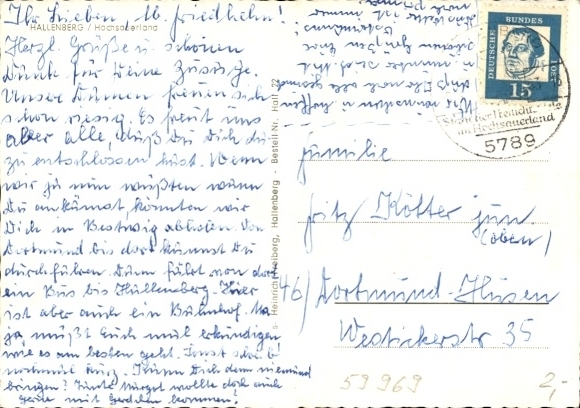 Ihr Lieben, lb. Friedhelm!
HALLENBERG / Hochsauerland
Herzl. Grüße u. schönen
Dank für Deine Zusage.
Unsere Damen freuen sich
schon riesig. Es freut uns
aber alle, daß Du Dich dazu
entschlossen hast. Wenn
wir ja nun wüßten wann
Du ankämst, könnten wir
Dich in Bestwig abholen. Von
Dortmund bis dort kannst Du
durchfahren. Dann fährt von dort
ein Bus bis Hallenberg. Hier
ist aber auch ein Bahnhof. Na
ja, müßt Euch mal erkundigen
wie es am besten geht. Sonst
nochmal kurz. Kann Dich denn niemand
bringen? Tante Margot wollte doch auch
gerne mit kommen!
Heinrich Hallenberg - Bestell Nr. Hall 22
DEUTSCHE BUNDESPOST
15
im Hochsauerland
5789
Familie
Fritz Kötter jun.
(oben)
46 / Dortmund-Husen
Westickerstr 35
59969
2,-